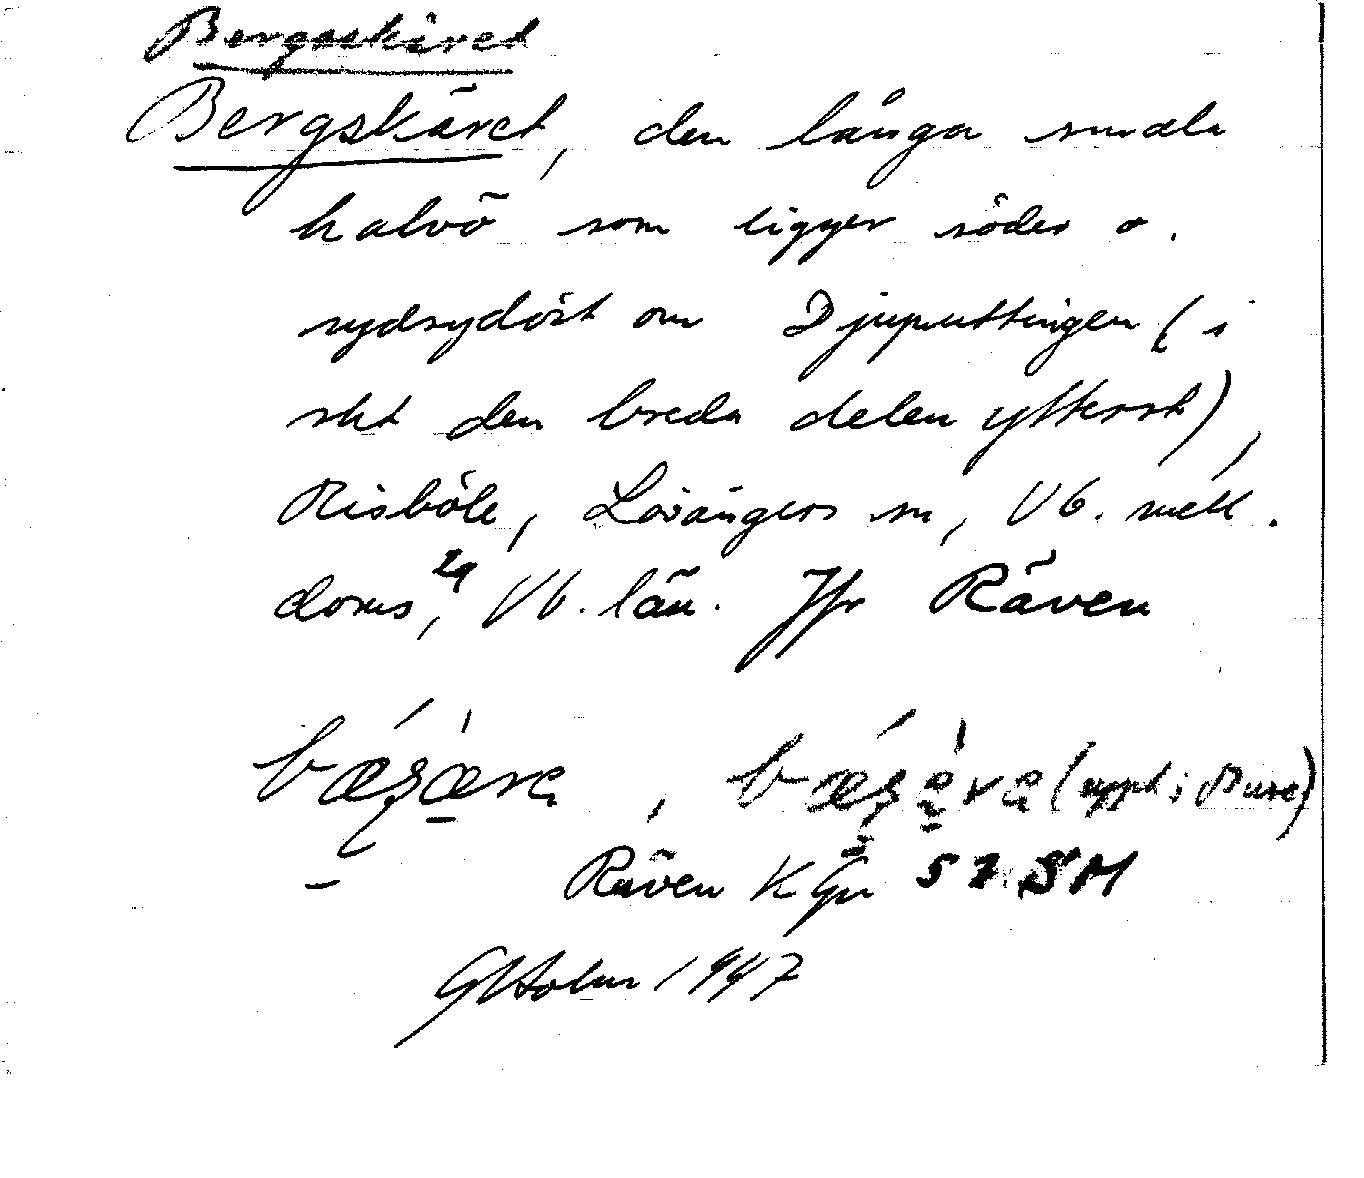 Bergskäret
Bergskäret, den långa smala
halvö som ligger söder o.
sydsydöst om Djuputtingen (i
sht den breda delen ytterst),
Risböle, Lövångers sn, Vb. mell.
doms, Vb. län. Jfr Räven
Räven K Gju 57 SM
GHolm 1947